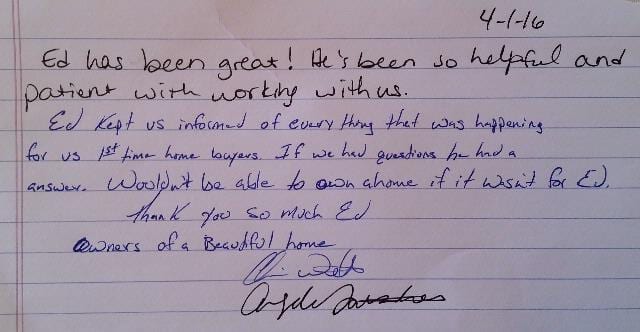 4-1-16
Ed has been great! He's been so helpful and
patient with working with us.
Ed kept us informed of every thing that was happening
for us 1st time home buyers. If we had questions he had a
answer. Wouldn't be able to own a home if it wasn't for Ed.
Thank you so much Ed
Owners of a Beautiful home